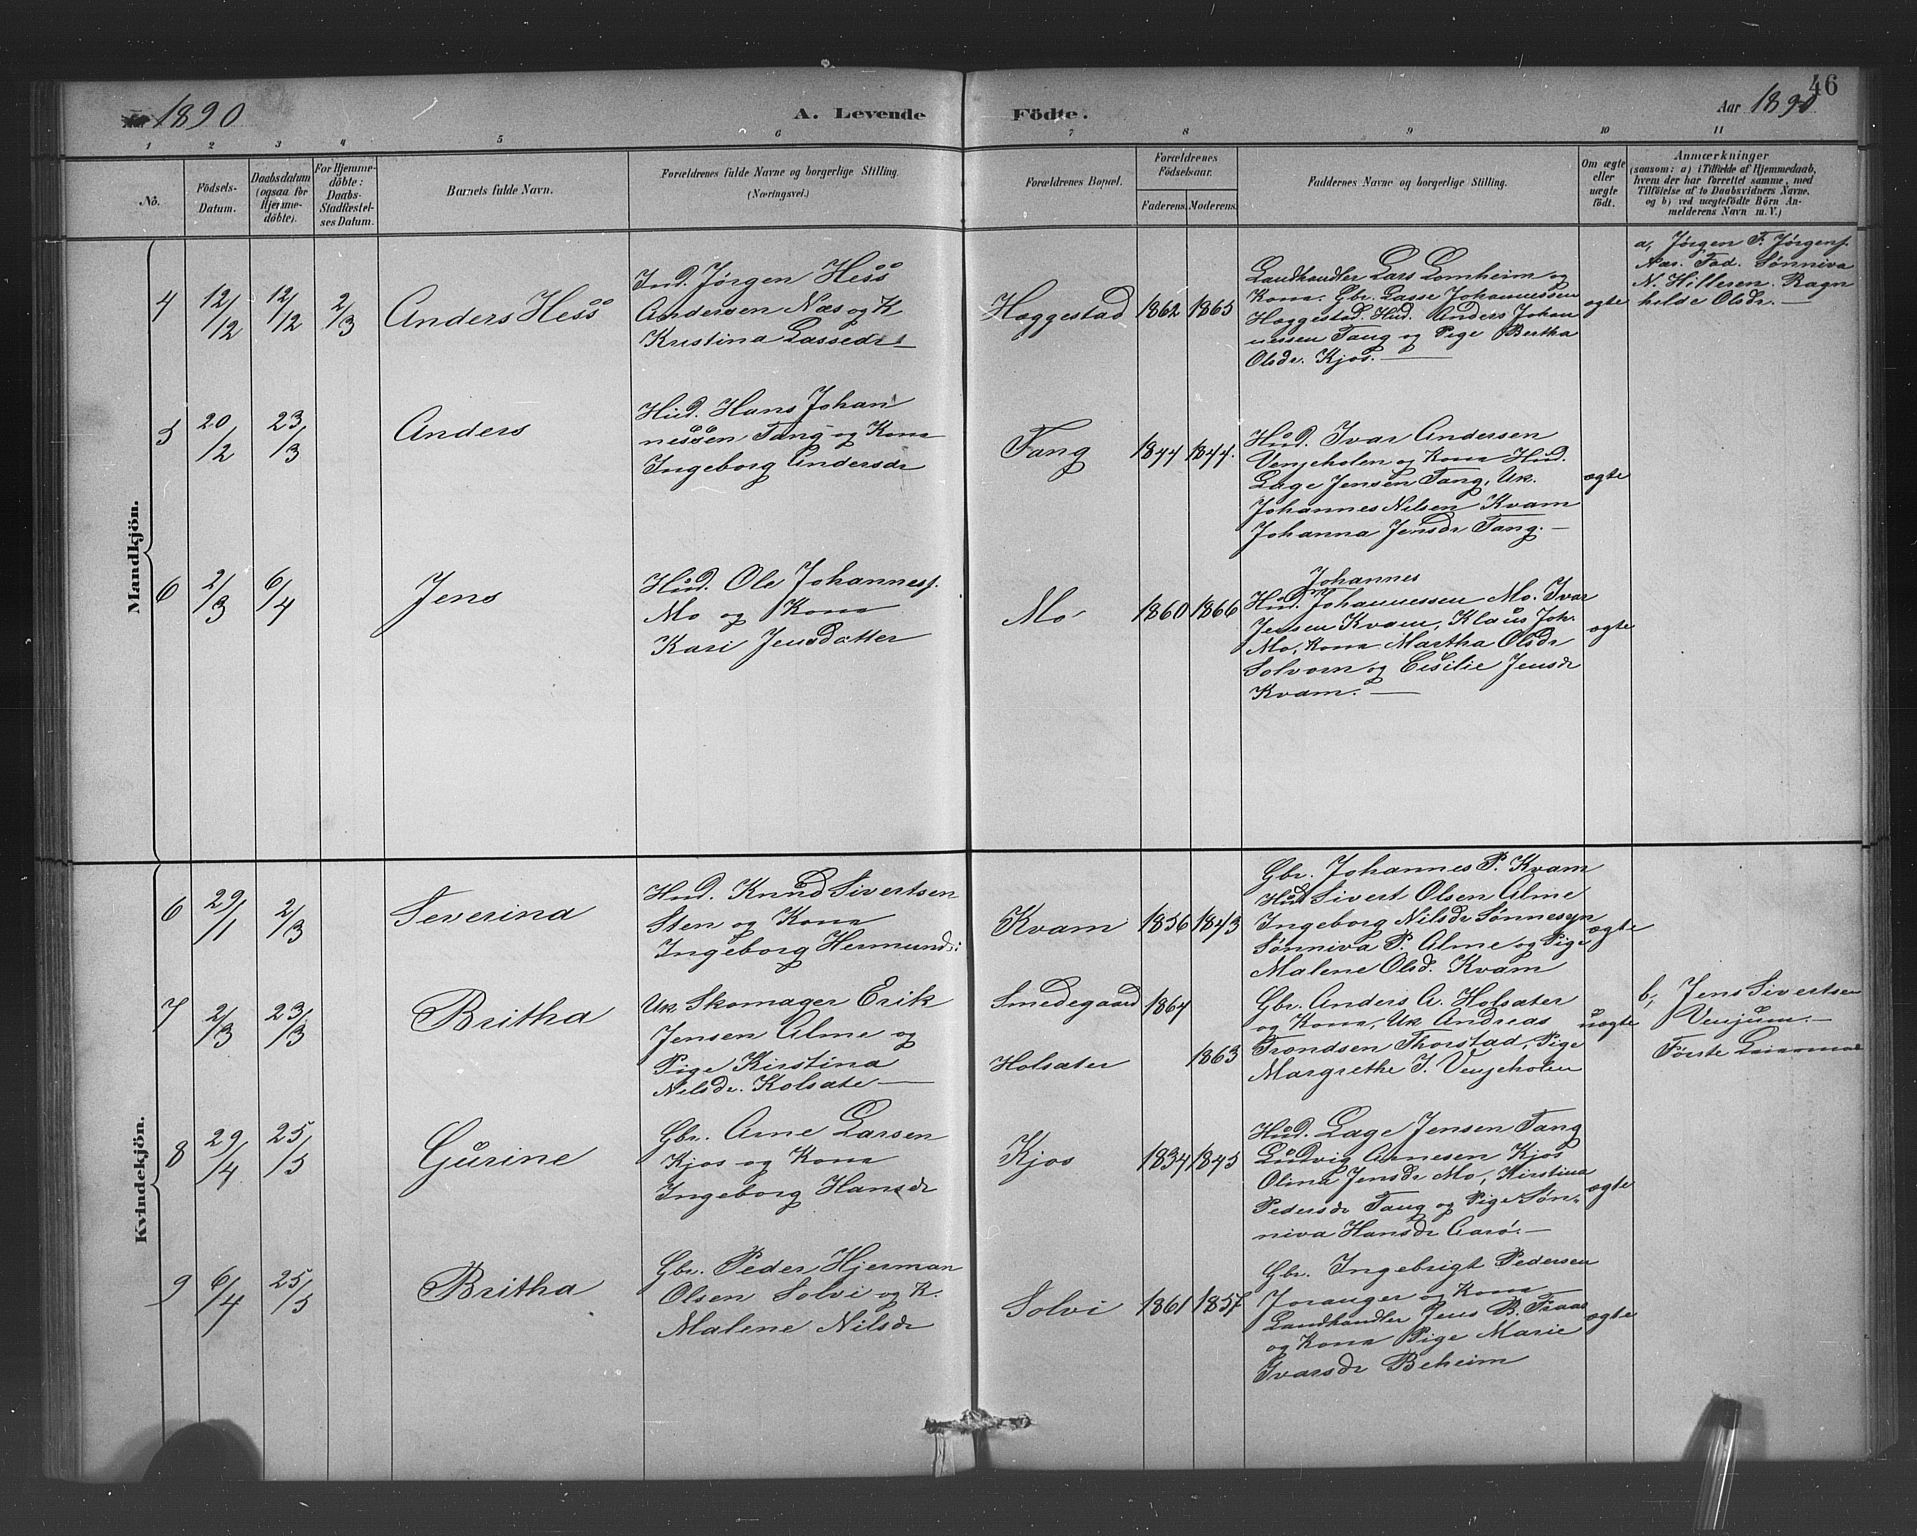 46
Aar 1890
A. Levende Födte.
Aar 1890
1 2 3 4 5 6 7 8 9 10 11
No.
Födsels-Datum.
Daabsdatum (ogsaa for Hjemme-döbte).
For Hjemme-döbte: Daabs-Stadfæstel-ses Datum.
Barnets fulde Navn.
Forældrenes fulde Navne og borgerlige Stilling.
(Næringsvei.)
Forældrenes Bopæl.
Forældrenes Födselsaar.
Faderens. Moderens.
Faddernes Navne og borgerlige Stilling.
Om ægte eller uægte födt.
Anmærkninger
(saasom: a) i Tilfælde af Hjemmedaab,
hvem der har forrettet samme, med
Tilföielse af to Daabsvidners Navne,
og b) ved uægtefödte Börn An-
melderens Navn m. V.)
Mandkjön.
4 12/12 12/12 2/3
Anders Hess
Ind. Jørgen Hess
Andersen Næs og K
Kristina Lassedr
Haggestad
1862 1865
Landhandler Lars Lomheim og
Kona. Gbr. Lasse Johannessen
Haggestad. Hud. Anders Johan
nessen Fang og Pige Bertha
Olsdr. Kjos.
ægte
a, Jørgen F. Jørgens.
Næs. Fad. Sønniva
N. Hilleren. Ragn
hilde Olsdr.
5 20/2 23/3
Anders
Hud. Hans Johan
nessen Fang og Kona
Ingeborg Andersdr
Fang
1844 1844.
Hud. Ivar Andersen
Venjeholen og Kona Hud.
Lage Jensen Fang, Uk.
Johannes Nilsen Kvam
Johanna Jensdr Fang.
ægte
6 2/3 6/4
Jens
Hud. Ole Johanness.
Mo og Kona
Kari Jensdatter
Mo
1860 1866
Johannes
Hud. Johannessen Mo. Ivar
Jensen Kvam, Klaus Joh.
Mo, Kona Martha Olsdr
Solvorn og Cesilie Jensdr
Kvam.
ægte
Kvindekjön.
6 29/1 2/3
Severina
Hud. Knud Sivertsen
Sten og Kona
Ingeborg Hermunds:
Kvam
1856 1843
Gbr. Johannes P. Kvam
Hud Sivert Olsen Alme
Ingeborg Nilsdr Sønnesyn
Sønniva P. Alme og Pige
Malene Olsd. Kvam
ægte
7 2/3 23/3
Britha
Uk Skomager Erik
Jensen Alme og
Pige Kirstina
Nilsdr. Kolsate
Smedegaard 1864
Holsater 1863
Gbr. Anders A. Holsater
og Kona, Uk Andreas
Trondsen Thorstad, Pige
Margrethe I. Venjeholen
uægte
b, Jens Sivertsen
Venjum.
Første Leiermaal
8 29/4 25/5
Gurine
Gbr. Arne Larsen
Kjos og Kona
Ingeborg Hansdr
Kjos
1834 1845
Hud. Lage Jensen Fang
Ludvig Arnesen Kjos
Olina Jensdr Mo, Kirstina
Pedersdr Fang og Pige Søn-
niva Hansdr Aarø.
ægte
9 6/4 25/5
Britha
Gbr. Peder Hjerman
Olsen Solvi og K.
Malene Nilsdr
Solvi
1861 1857
Gbr. Ingebrigt Pedersen
Joranger og Kona
Landhandler Jens B. Fraas
og Kona Pige Marie
Ivarsdr Beheim
ægte